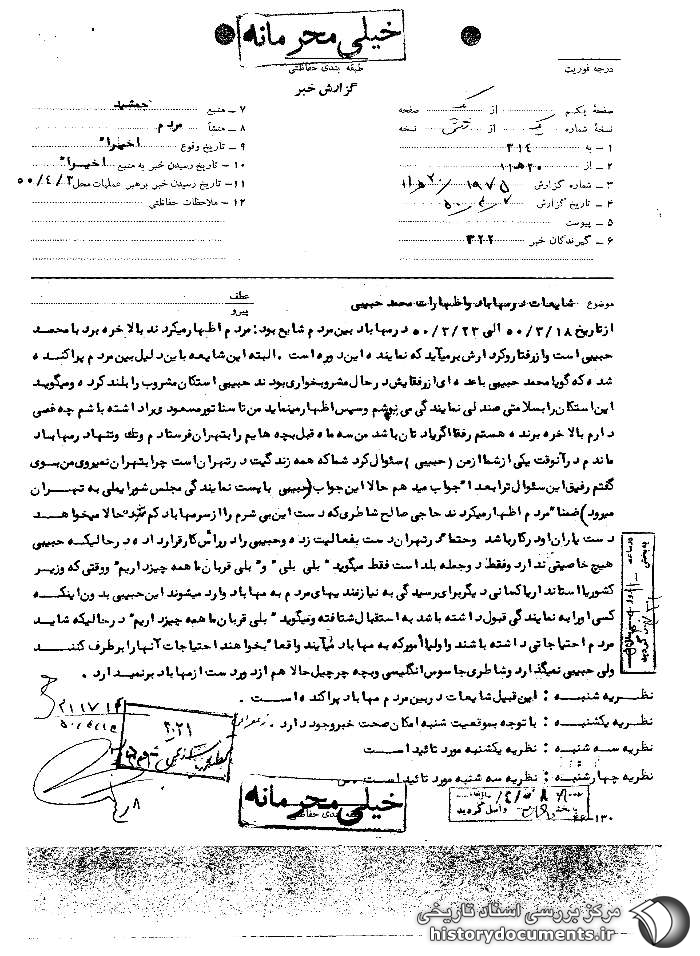 خیلی محرمانه
طبقه بندی حفاظتی
گزارش خبر
درجه فوریت
صفحهٔ یکم از یک صفحه
نسخهٔ شماره یک از شش نسخه
۱ ـ به ۳۱۴
۲ ـ از ۲۰ ه‍ ۱۱
۳ ـ شماره گزارش ۱۹۷۵ / ۲۰ ه‍ ۱۱
۴ ـ تاریخ گزارش ۵۰/۴/۷
۵ ـ پیوست
۶ ـ گیرندگان خبر ۳۲۲
۷ ـ منبع جمشید
۸ ـ منشأ مردم
۹ ـ تاریخ وقوع اخیرا"
۱۰ ـ تاریخ رسیدن خبر به منبع اخیرا"
۱۱ ـ تاریخ رسیدن خبر برهبر عملیات محل ۵۰/۴/۳
۱۲ ـ ملاحظات حفاظتی
موضوع شایعات در مهاباد و اظهارات محمد حبیبی
عطف
پیرو
از تاریخ ۵۰/۳/۱۸ الی ۵۰/۳/۲۳ در مهاباد بین مردم شایع بود: مردم اظهار میکردند بالاخره برد با محمد
حبیبی است و از رفتار و کردارش برمیآید که نماینده این دوره است . البته این شایعه باین دلیل بین مردم پراکنده
شده که گویا محمد حبیبی با عده ای از رفقایش در حال مشروبخواری بودند حبیبی استکان مشروب را بلند کرده و میگوید
این استکان را بسلامتی صندلی نمایندگی می نوشم و سپس اظهار مینماید من تا سناتور مسعودی را داشته باشم چه غمی
دارم بالاخره برنده هستم رفقا اگر یادتان باشد من سه ماه قبل بچه هایم را بتهران فرستادم و تک و تنها در مهاباد
ماندم در آنوقت یکی از شما از من ( حبیبی ) سئوال کرد شما که همه زندگیت در تهران است چرا بتهران نمیروی من بوی
گفتم رفیق این سئوال ترا بعدا" جواب میدهم حالا این جواب (حبیبی با پست نمایندگی مجلس شورایملی به تهران
میرود) ضمنا" مردم اظهار میکردند حاجی صالح شاطری که دست این بی شرم را از سر مهاباد کم نمیکرد حالا میخواهد
دست یاران او در کار باشد و حتما" در تهران دست بفعالیت زده و حبیبی را در رأس کار قرار داده در حالیکه حبیبی
هیچ خاصیتی ندارد و فقط دو جمله بلد است فقط میگوید " بلی بلی " و " بلی قربان ما همه چیز داریم " و وقتی که وزیر
کشور یا استاندار یا کمانی دیگر برای رسیدگی به نیازمندیهای مردم به مهاباد وارد میشوند این حبیبی بدون اینکه
کسی او را به نمایندگی قبول داشته باشد به استقبال شتافته و میگوید " بلی قربان ما همه چیز داریم " در حالیکه شاید
مردم احتیاجاتی داشته باشند و اولیا امور که به مهاباد میآیند واقعا" بخواهند احتیاجات آنها را برطرف کنند
ولی حبیبی نمیگذارد و شاطری جاسوس انگلیسی و بچه چرچیل حالا هم از دور دست از مهاباد برنمیدارد .
نظریه شنبه : این قبیل شایعات در بین مردم مهاباد پراکنده است .
نظریه یکشنبه : با توجه بموقعیت شنبه امکان صحت خبر وجود دارد .
نظریه سه شنبه : نظریه یکشنبه مورد تائید است
نظریه چهارشنبه : نظریه سه شنبه مورد تائید است
۳۱۱۷۱۴
۲۰۲۱
۸
خیلی محرمانه
طبقه بندی حفاظتی
واصل گردید
۱۳۰-۴۶
مرکز بررسی اسناد تاریخی
historydocuments.ir